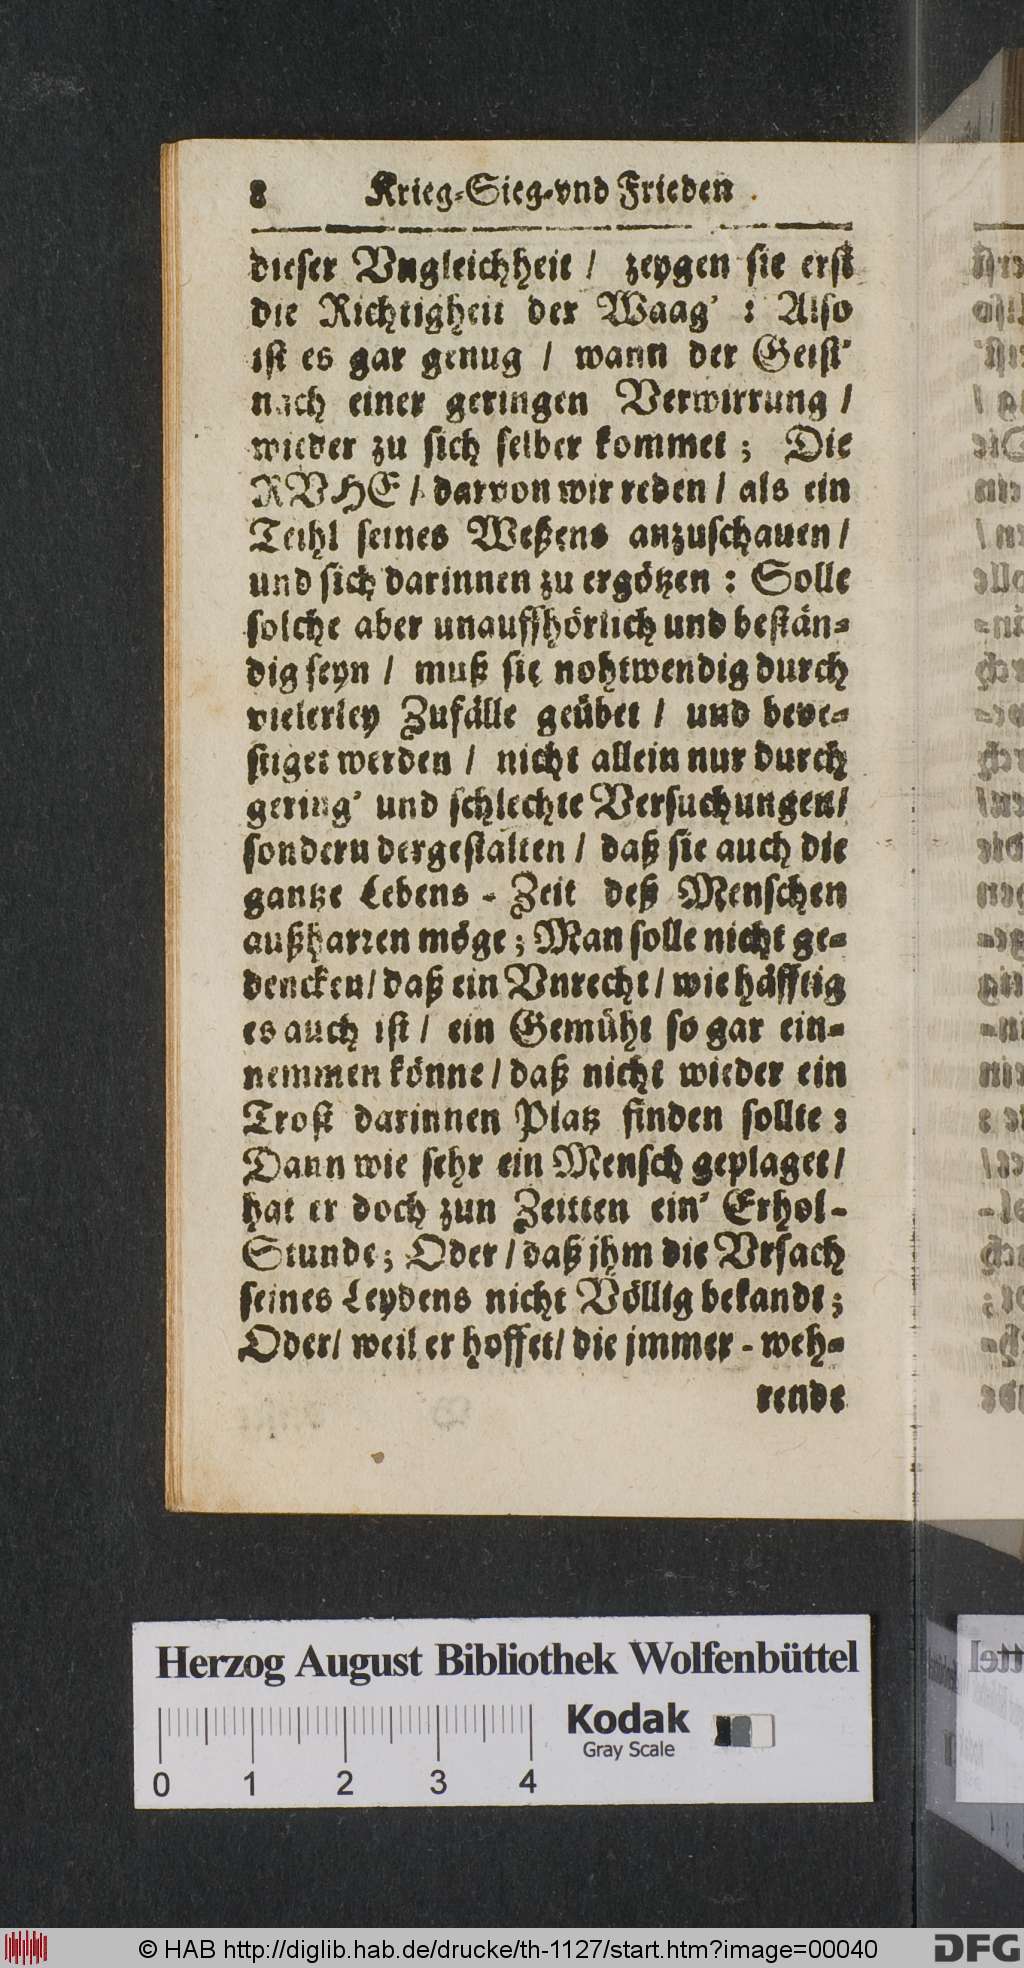 8 Krieg-Sieg-vnd Frieden
dieser Vngleichheit / zeygen sie erst
die Richtigheit der Waag' : Also
ist es gar genug / wann der Geist'
nach einer geringen Verwirrung /
wieder zu sich selber kommet ; Die
RVHE / darvon wir reden / als ein
Teihl seines Weßens anzuschauen /
und sich darinnen zu ergötzen : Solle
solche aber unauffhörlich und bestän-
dig seyn / muß sie nohtwendig durch
vielerley Zufälle geübet / und beve-
stiget werden / nicht allein nur durch
gering' und schlechte Versuchungen/
sondern dergestalten / daß sie auch die
gantze Lebens - Zeit deß Menschen
außharren möge ; Man solle nicht ge-
dencken/ daß ein Vnrecht / wie häfftig
es auch ist / ein Gemüht so gar ein-
nemmen könne / daß nicht wieder ein
Trost darinnen Platz finden sollte :
Dann wie sehr ein Mensch geplaget /
hat er doch zun Zeitten ein' Erhol-
Stunde ; Oder / daß jhm die Vrsach
seines Leydens nicht Völlig bekandt ;
Oder/ weil er hoffet/ die jmmer - weh-
rende
Herzog August Bibliothek Wolfenbüttel
Kodak
Gray Scale
0 1 2 3 4
© HAB http://diglib.hab.de/drucke/th-1127/start.htm?image=00040
DFG